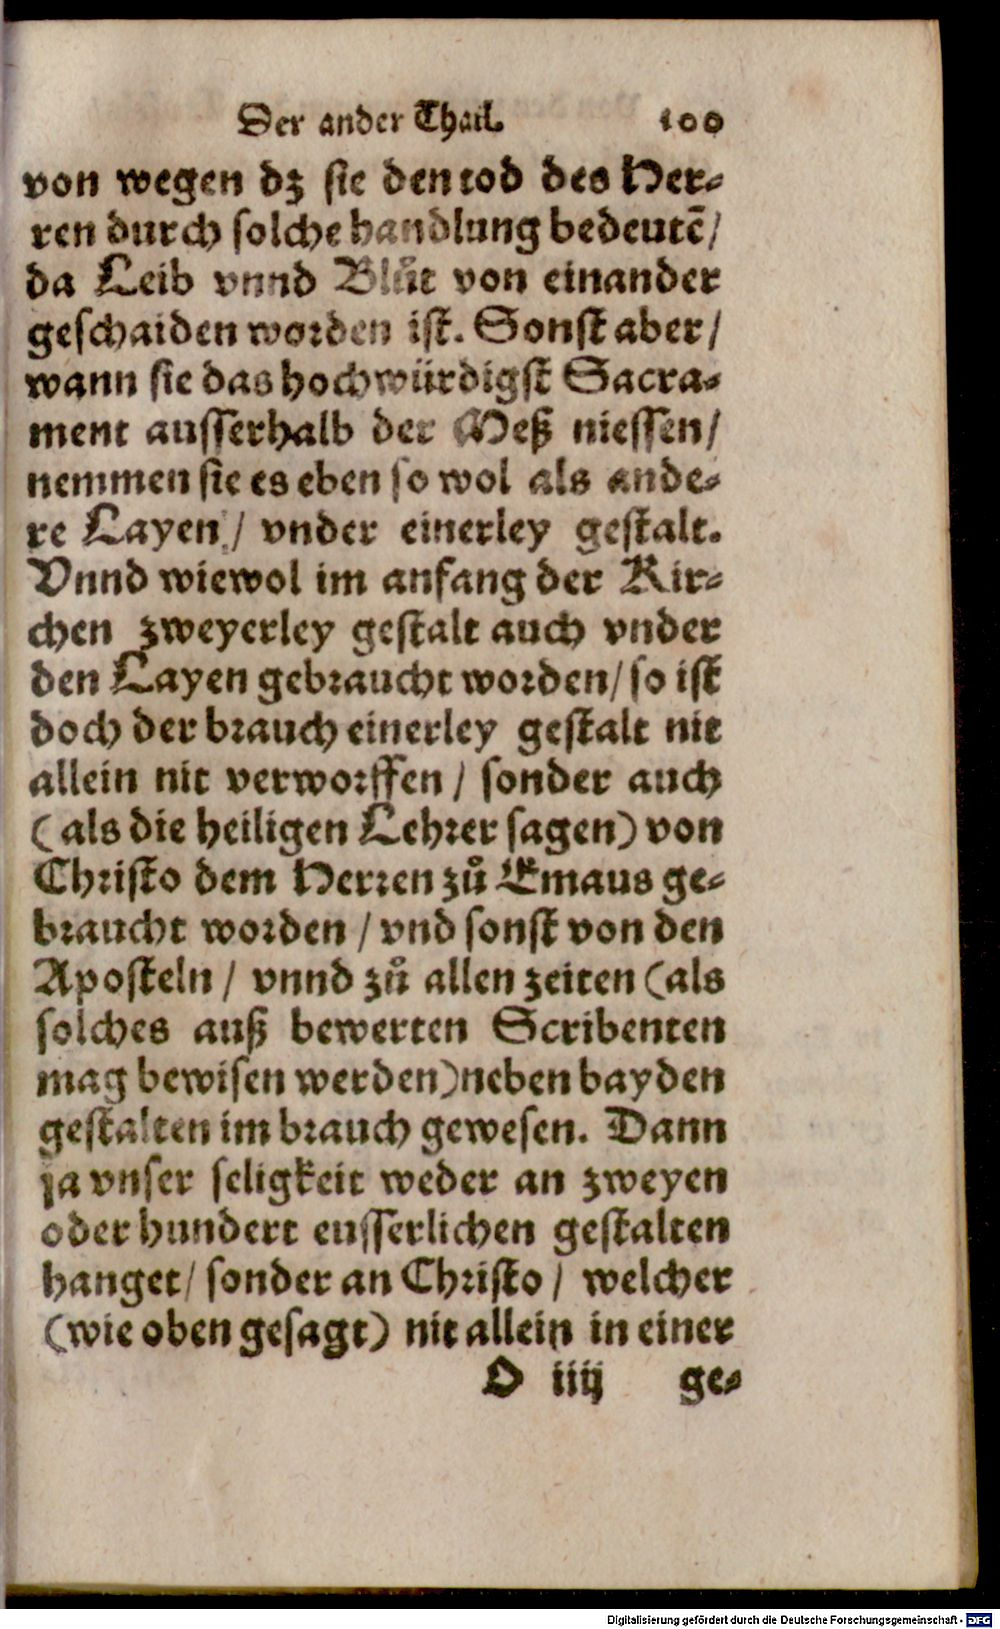 Der ander Thail. 100
von wegen dz sie den tod des Her-
ren durch solche handlung bedeutē/
da Leib vnnd Blůt von einander
geschaiden worden ist. Sonst aber/
wann sie das hochwürdigst Sacra-
ment ausserhalb der Meß niessen/
nemmen sie es eben so wol als ande-
re Layen/ vnder einerley gestalt.
Vnnd wiewol im anfang der Kir-
chen zweyerley gestalt auch vnder
den Layen gebraucht worden/ so ist
doch der brauch einerley gestalt nit
allein nit verworffen/ sonder auch
(als die heiligen Lehrer sagen) von
Christo dem Herren zů Emaus ge-
braucht worden/ vnd sonst von den
Aposteln/ vnnd zů allen zeiten (als
solches auß bewerten Scribenten
mag bewisen werden) neben bayden
gestalten im brauch gewesen. Dann
ja vnser seligkeit weder an zweyen
oder hundert eusserlichen gestalten
hanget/ sonder an Christo/ welcher
(wie oben gesagt) nit allein in einer
O iiij ge-
Digitalisierung gefördert durch die Deutsche Forschungsgemeinschaft - DFG